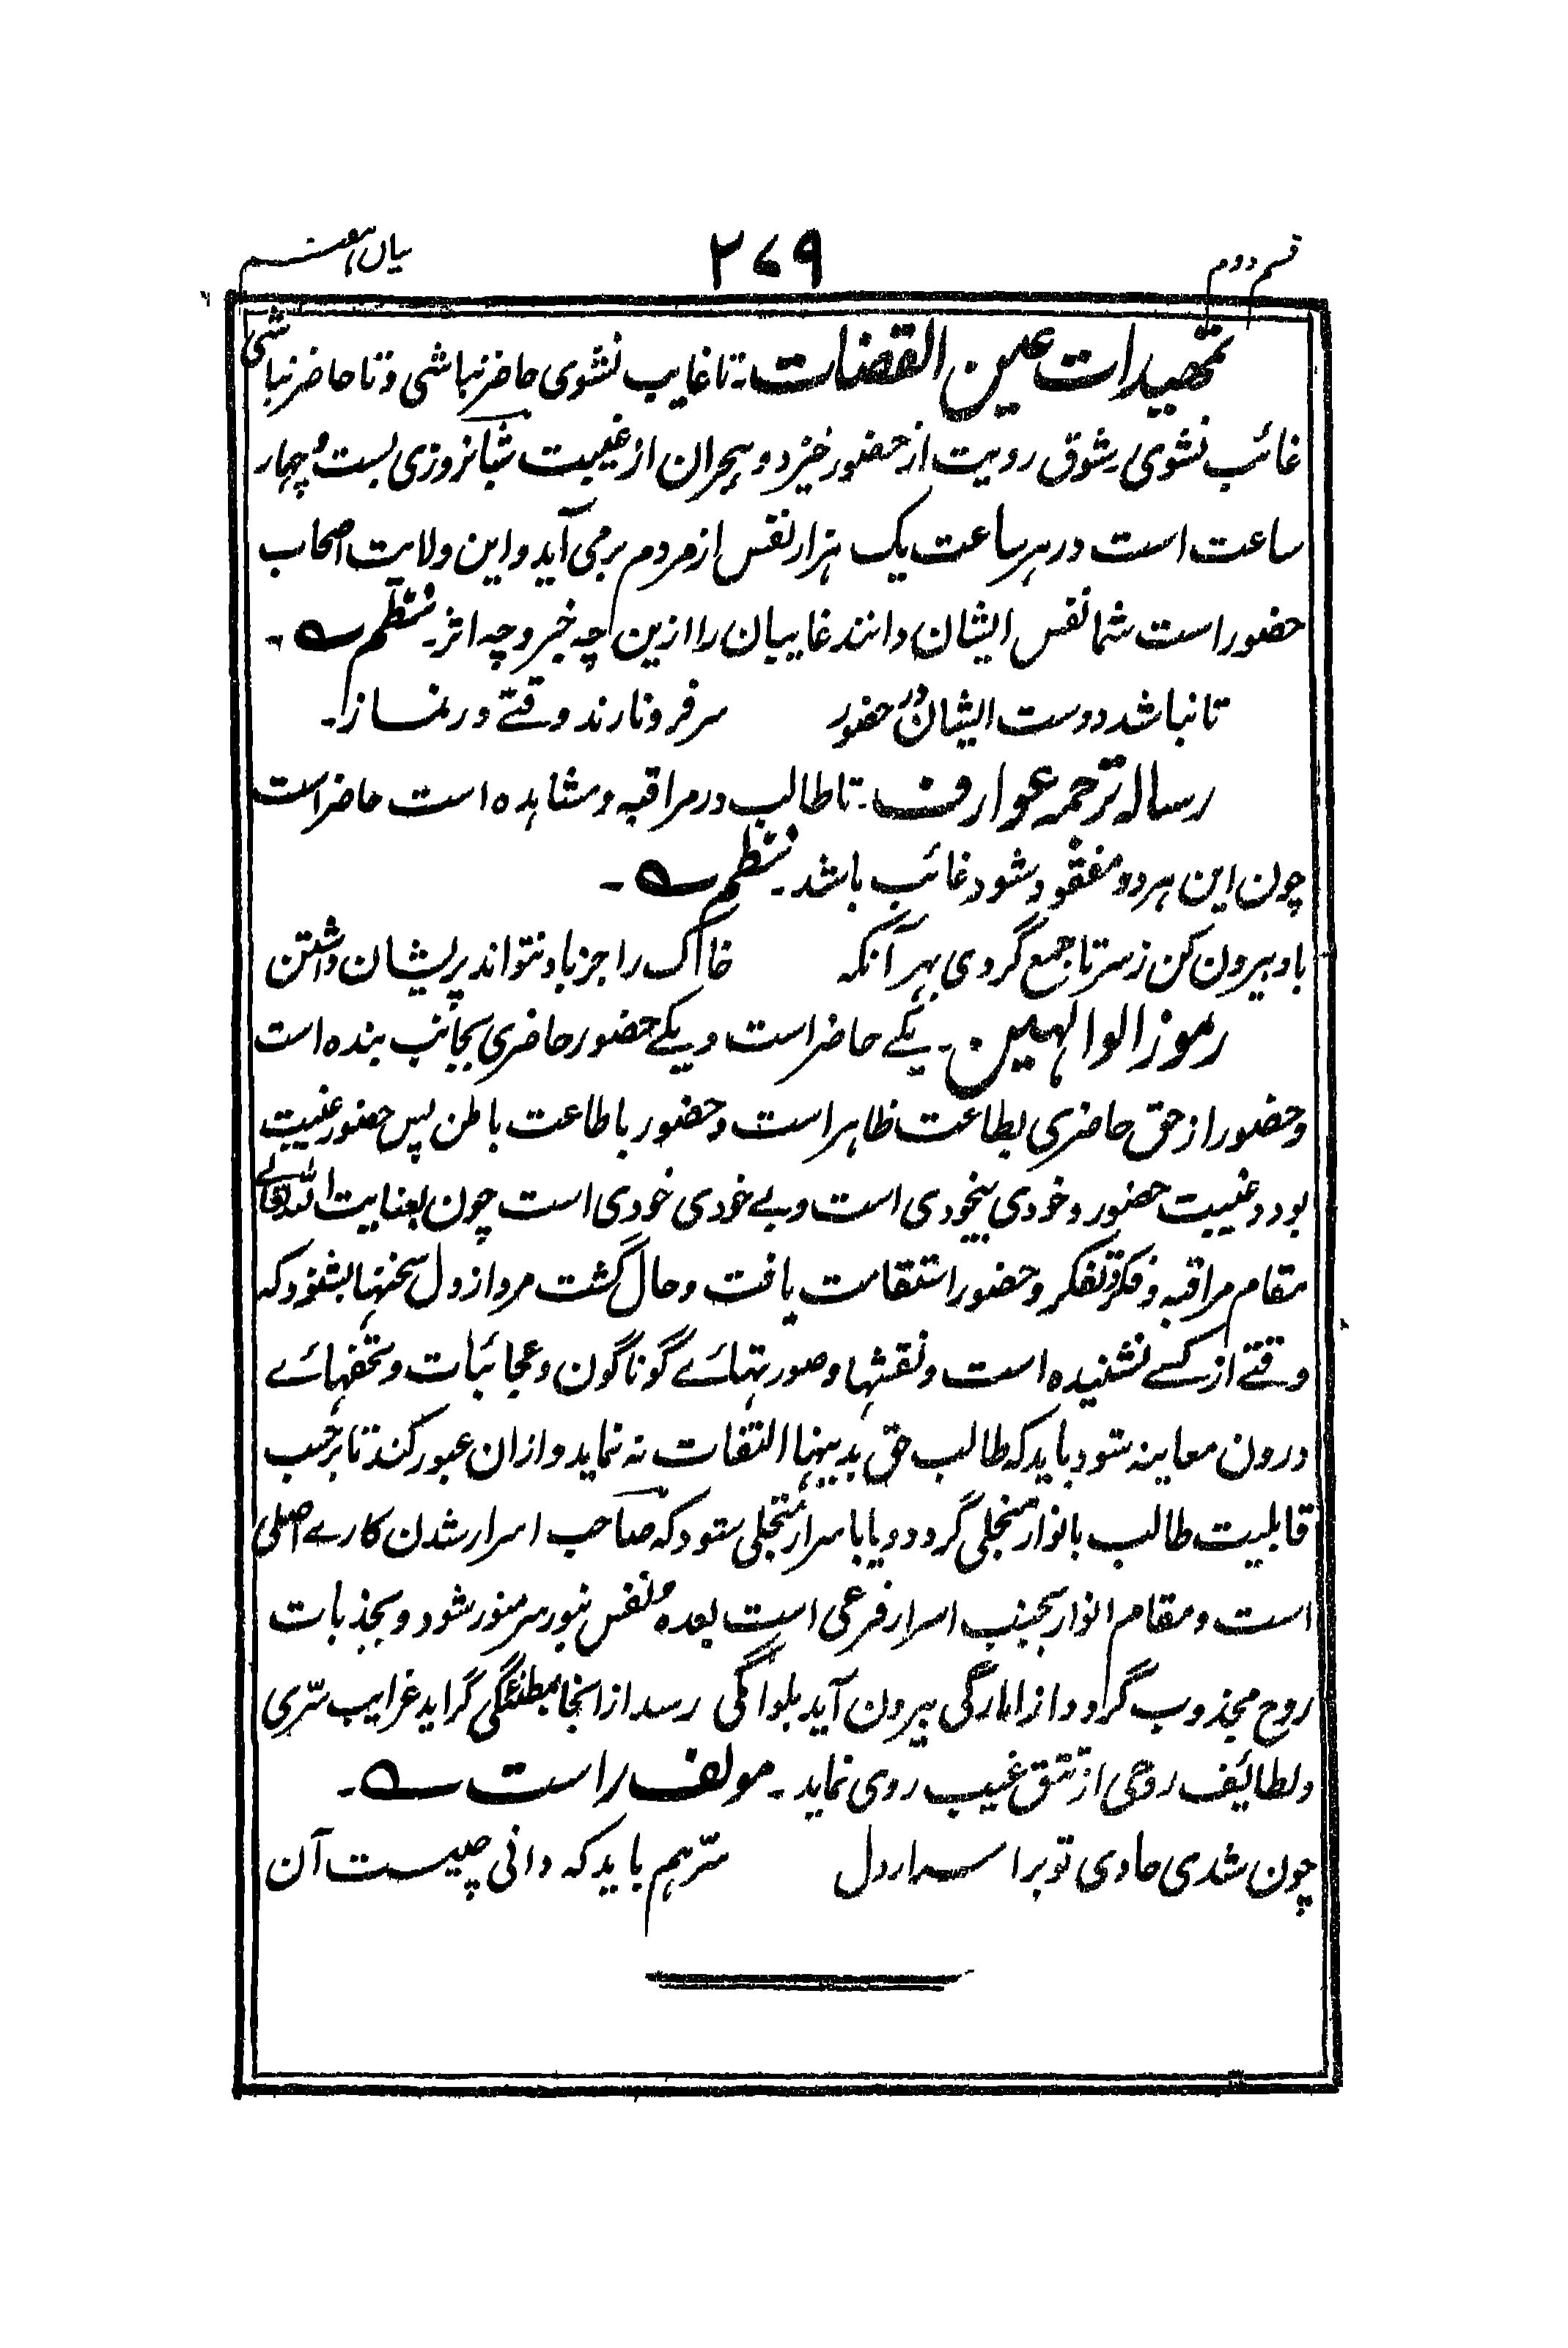 قسم دوم ۲۷۹ بیان هفتم
تمهیدات عین القضات:۔ تا غایب نشوی حاضر نباشی و تا حاضر نباشی
غائب نشوی شوق رویت از حضور خیزد و ہجران از غیبیت شبانروزی بست و چهار
ساعت است در ہر ساعت یک ہزار نفس از مردم بر می آید و این ولایت اصحاب
حضور است شما نفس ایشان دانند غایبان را ازین چہ خبر و چہ اثر۔ نظم ے۔
تا نباشد دوست ایشان در حضور سر فرو نارند وقتے در نماز۔
رسالہ ترجمہ عوارف۔ تا طالب در مراقبہ و مشاہدہ است حاضر است
چون این ہر دو مفقود شود غائب باشد۔ نظم ے۔
باد بیرون کن ز سر تا جمع گردی بہر آنکہ خاک را جز باد نتواند پریشان داشتن
رموز الوالہین۔ یکے حاضر است و یکے حضور حاضری بجانب بندہ است
و حضور از حق حاضری بطاعت ظاہر است و حضور با طاعت باطن پس حضور غیبیت
بود و غیبیت حضور و خودی بیخودی است و بے خودی خودی است چون بعنایت اللہ تعالے
مقام مراقبہ و فکر و تفکر و حضور استقامت یافت و حال گشت مرد از دل سخنہا بشنود کہ
وقتے از کسے نشنیدہ است و نقشہا و صورتہائے گوناگون و عجائبات و تحفہائے
درون معاینہ شود باید کہ طالب حق بدینہا التفات نہ نماید و ازان عبور کند تا برحسب
قابلیت طالب بانوار منجلی گردد و یا باسرار متجلی شود کہ صاحب اسرار شدن کارے اصلی
است و مقام انوار بجنب اسرار فرعی است بعدہ نفس بنور سر منور شود و بجذبات
روح مجذوب گردد و از امارگی بیرون آید بلوامگی رسد از انجا بمطمئنگی گراید غرایب سرّی
و لطائف روحی از تتق غیب روی نماید۔ مولف راست ے۔
چون شدی حاوی تو بر اسرار دل سرّہم باید کہ دانی چیست آن